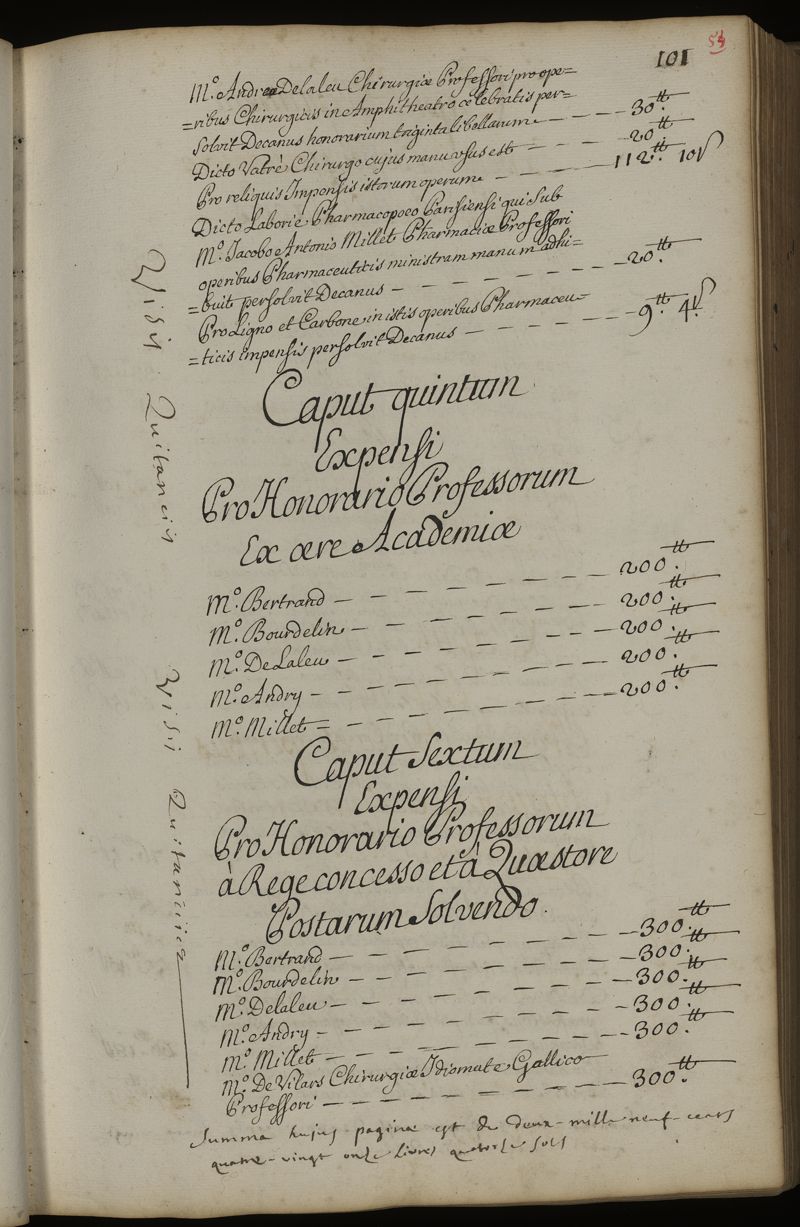 101
54
M.º Andreæ Delaleu Chirurgiæ Professori pro ope=
=ribus Chirurgicis in Amphitheatro celebratis per=
solvit Decanus honorarium triginta libellarum — — — 30.tt
Dicto Vatré Chirurgo cujus manu usus est — — — 20.tt
Pro reliquis Impensis istorum operum — — — 112.tt 10ſ
Dicto Laborie Pharmacopoeo Parisiensi qui sub
M.º Jacobo Antonio Millet Pharmaciæ Professori
operibus Pharmaceuticis ministram manum adhi=
=buit persolvit Decanus — — — 20.tt
Pro Ligno et Carbone in istis operibus Pharmaceu=
=ticis impensis persolvit Decanus — — — 9.tt 4.ſ
Visis Quitanciis
Caput quintum
Expensi
Pro Honorario Professorum
Ex ære Academiæ
M.º Bertrand — — — 200.tt
M.º Bourdelin — — — 200.tt
M.º DeLaleu — — — 200.tt
M.º Andry — — — 200.tt
M.º Millet = — — — 200.tt
Visis Quitanciis
Caput Sextum
Expensi
Pro Honorario Professorum
à Rege concesso et à Quæstore
Postarum Solvendo.
M.º Bertrand — — — 300.tt
M.º Bourdelin — — — 300.tt
M.º Delaleu — — — 300.tt
M.º Andry — — — 300.tt
M.º Millet — — — 300.tt
M.º De Vilars Chirurgiæ Idiomate Gallico
Professori — — — 300.tt
Summa hujus paginæ est de deux-mille neuf-cents
quatre-vingt onze livres quatorze sols